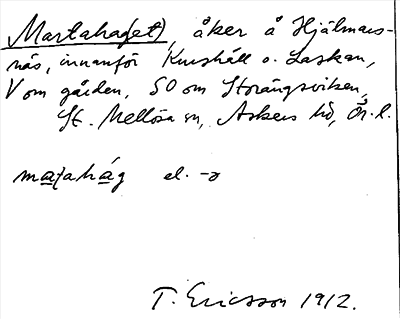 Martahage(t), åker å Hjälmars-
näs, innanför Knushäll o. Laskan,
V om gården, SO om Storängsviken,
St. Mellösa sn, Askers hd, Ör. l.
maṭahág el. -ə
T. Ericsson 1912.